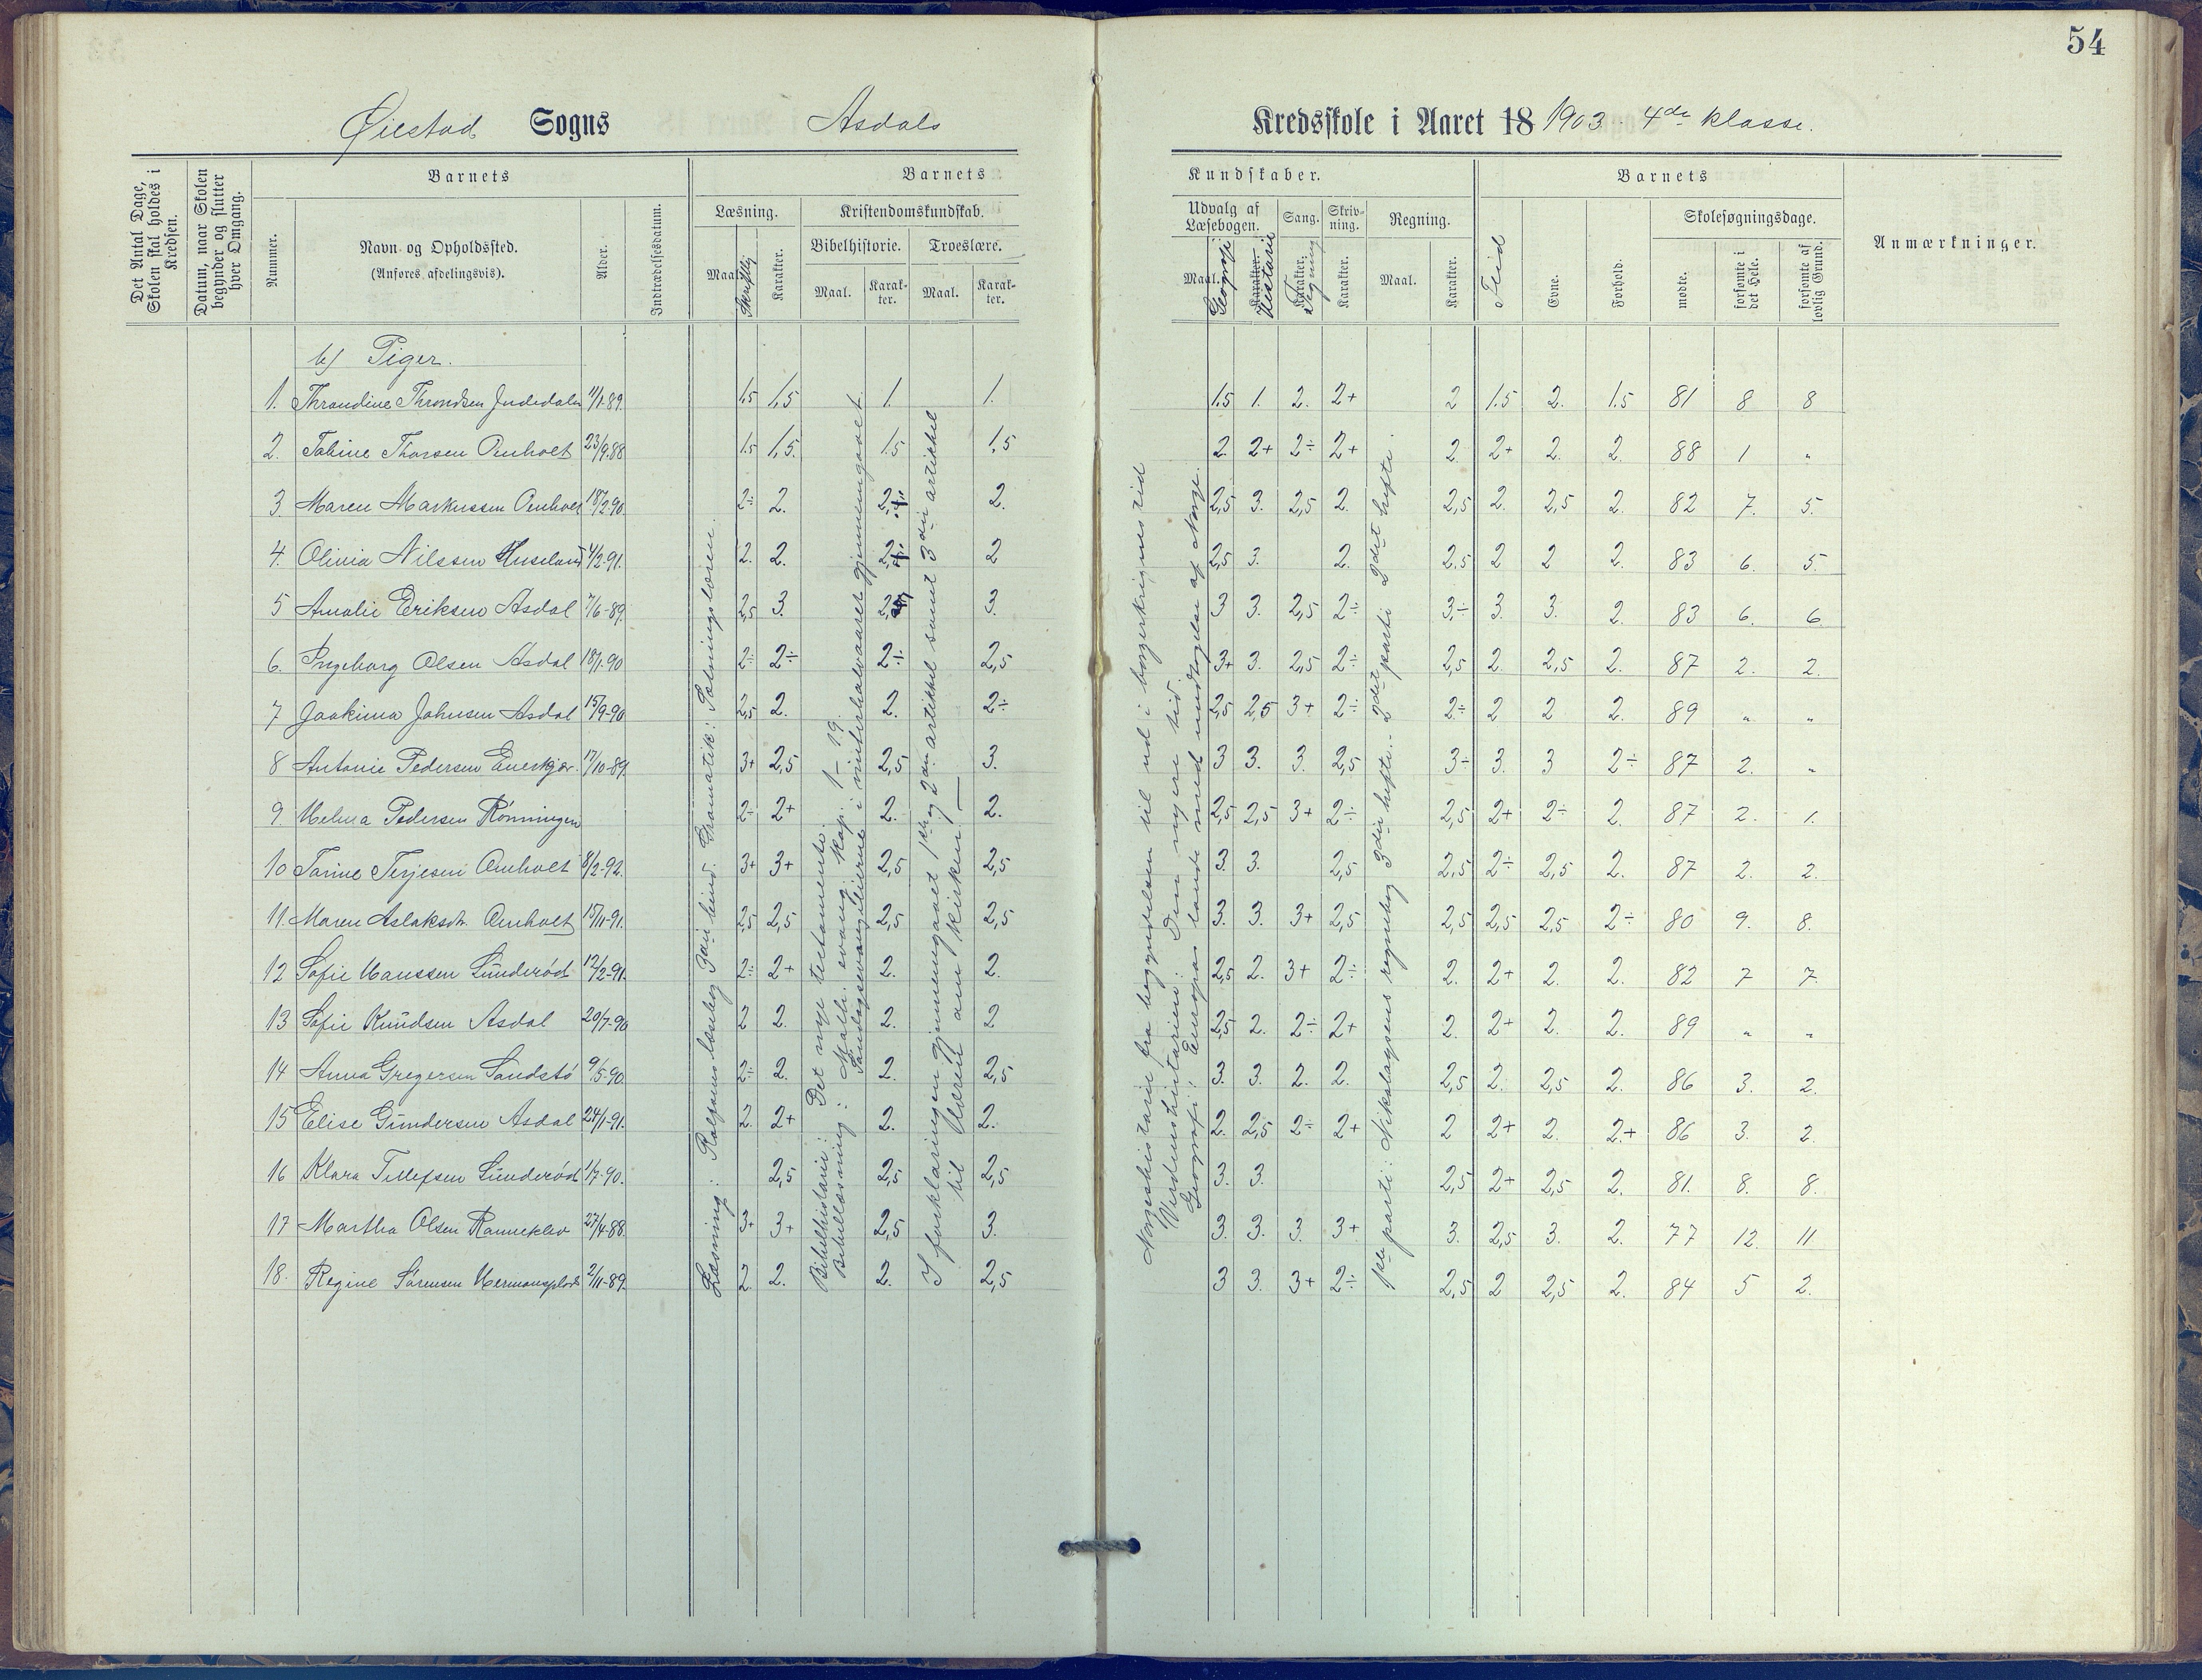 54
Øiestad Sogns Asdals Kredsskole i Aaret 18 1903 4de klasse.
Det Antal Dage, Skolen skal holdes i Kredsen.
Datum, naar Skolen begynder og slutter hver Omgang.
Barnets
Nummer.
Navn og Opholdssted.
(Anføres afdelingsvis).
Alder.
Indtrædelsesdatum.
Barnets Kundskaber.
Læsning.
Maal. Skriftlig Karakter.
Kristendomskundskab.
Bibelhistorie. Troeslære.
Maal. Karakter. Maal. Karakter.
Udvalg af Læsebogen. Sang. Skrivning. Regning.
Maal. Geografi Karakter. Historie Karakter. Tegning Karakter. Maal. Karakter.
Barnets
Flid Evne. Forhold.
Skolesøgningsdage.
mødte. forsømte i det Hele. forsømte af lovlig Grund.
Anmærkninger.
b) Piger.
1. Throndine Throndsen 11/1-89. 1,5 1,5 1. 1. 1,5 1. 2. 2+ 2 1,5 2. 1.5 81 8 8
2. Tobine Thorsen Omholt 23/9.88 1.5 1,5. 1.5 1,5 2. 2+ 2÷ 2+ 2. 2+ 2. 2. 88 1 "
3. Maren Markussen Omholt 18/2.90 2÷ 2. 2. 2. 2,5 3. 2,5 2. 2,5 2. 2,5 2. 82 7. 5.
4. Olivia Nilssen Huseland 4/2-91. 2. 2. 2. 2 2,5 3. 2. 2,5 2 2 2. 83 6. 5.
5 Amalie Eriksen Asdal 7/6-89. 2,5 3. 3. 3 3. 2,5 2÷ 3÷ 3. 3. 2. 83 6. 6.
6. Ingeborg Olsen Asdal 18/1-90 2÷ 2÷ 2÷ 2,5 3+ 3. 2,5 2÷ 2,5 2. 2,5 2. 87 2. 2.
7 Joakima Johnsen Asdal 15/9-90 2,5 2. 2. 2÷ 2,5 2,5 3+ 2÷ 2÷ 2 2 2. 89 " "
8 Antonie Pedersen 17/10-89. 3+ 2,5 2,5 3. 3 3. 3. 2,5 3÷ 3. 3 2÷ 87 2. "
9. Helma Pedersen Rønningen 2÷ 2+ 2. 2. 2,5 2,5 3+ 2÷ 2,5 2+ 2÷ 2. 87 2. 1.
10 Tarine Terjesen Omholt 8/2-92. 3+ 3+ 2,5 2,5 3. 3. 2,5 2,5 2÷ 2,5 2. 87 2. 2.
11. Maren Aslaksdtr. Omholt 15/11-91. 2,5 2,5 2,5 2,5 3. 3. 3+ 2,5 2,5 2,5 2,5 2÷ 80 9. 8.
12 Sofie Hanssen Sunderød 12/2-91. 2÷ 2+ 2. 2. 2,5 2. 3+ 2÷ 2. 2+ 2. 2. 82 7 7.
13 Sofie Knudsen Asdal 20/7-90 2 2. 2. 2 2,5 2. 2÷ 2+ 2. 2+ 2. 2. 89 " "
14 Anna Gregersen Sandstø 9/5-90. 2÷ 2. 2. 2,5 3. 3. 2. 2. 2,5 2. 2,5 2. 86 3. 2.
15 Elise Gundersen Asdal 24/1-91. 2. 2+ 2. 2. 2. 2,5 2÷ 2+ 2 2+ 2. 2.+ 86 3. 2.
16 Klara Tellefsen Sunderød 1/7-90. 2,5 2,5 2,5 3. 3. 2,5 2+ 2,5 2. 81. 8. 8.
17 Martha Olsen Ranneklev 27/4-88. 3+ 3+ 2,5 3. 3. 3. 3. 3+ 3. 2,5 3. 2. 77 12. 11
18. Regine Sørensen Hermansplads 2/11-89. 2. 2. 2. 2,5 3 3. 3+ 2÷ 2,5 2 2,5 2. 84 5 2.
Læsning: Rolfsens læsebog 3die bind. Gramatik: Sætningslæren.
Bibelhistorie: Det nye testamente.
Bibellæsning: Math. evang. kap. 1 – 19.
Søndagsevangelierne i vinterhalvaaret gjennemgaaet.
I forklaringen gjennemgaaet 1ste og 2den artikkel samt 3die artikkel
til Læren om kirken. —
Norgeshistorie fra begyndelsen til ud i borgerkrigens tid
Verdenshistorien: Den nyere tid.
Geografi: Europas lande med undtagelse af Norge.
1ste parti: Nikolaysens regnebog 3die hefte. - 2det parti 2det hefte.